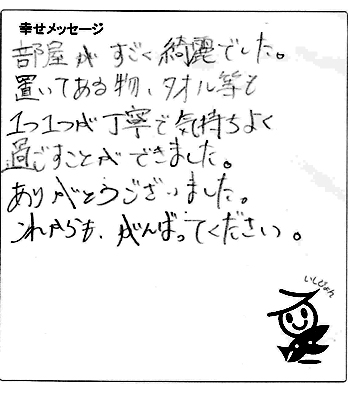 幸せメッセージ
部屋がすごく綺麗でした。
置いてある物、タオル等も
1つ1つが丁寧で気持ちよく
過ごすことができました。
ありがとうございました。
これからも、がんばってください。
いしぴょん